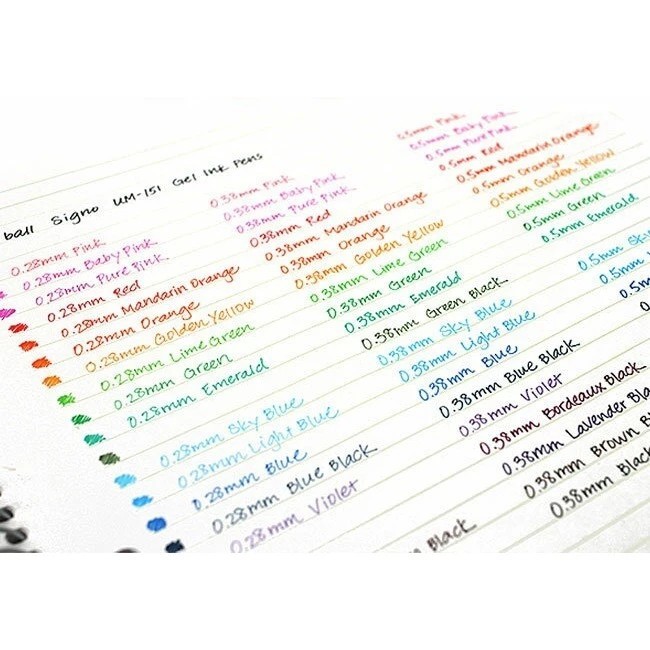 ball Signo UM-151 Gel Ink Pens
0.28mm Pink
0.28mm Baby Pink
0.28mm Pure Pink
0.28mm Red
0.28mm Mandarin Orange
0.28mm Orange
0.28mm Golden Yellow
0.28mm Lime Green
0.28mm Green
0.28mm Emerald
0.28mm Sky Blue
0.28mm Light Blue
0.28mm Blue
0.28mm Blue Black
0.28mm Violet
Black
0.38mm Pink
0.38mm Baby Pink
0.38mm Pure Pink
0.38mm Red
0.38mm Mandarin Orange
0.38mm Orange
0.38mm Golden Yellow
0.38mm Lime Green
0.38mm Green
0.38mm Emerald
0.38mm Green Black
0.38mm Sky Blue
0.38mm Light Blue
0.38mm Blue
0.38mm Blue Black
0.38mm Violet
0.38mm Bordeaux Black
0.38mm Lavender Bla
0.38mm Brown B
0.38mm Black
0.5mm Pink
0.5mm Baby Pink
0.5mm Pure Pink
0.5mm Red
0.5mm Mandarin Orange
0.5mm Orange
0.5mm Golden Yellow
0.5mm Lime Green
0.5mm Green
0.5mm Emerald
0.5mm Sky
0.5mm L
0.5m